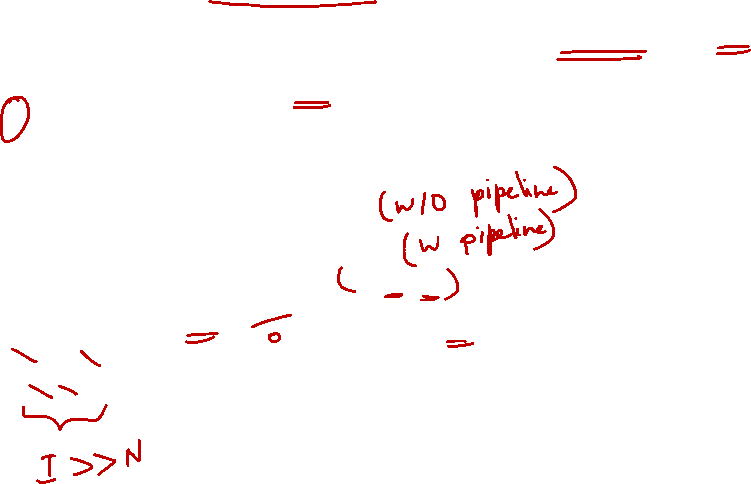 (w/o pipeline)
(w pipeline)
I >> N